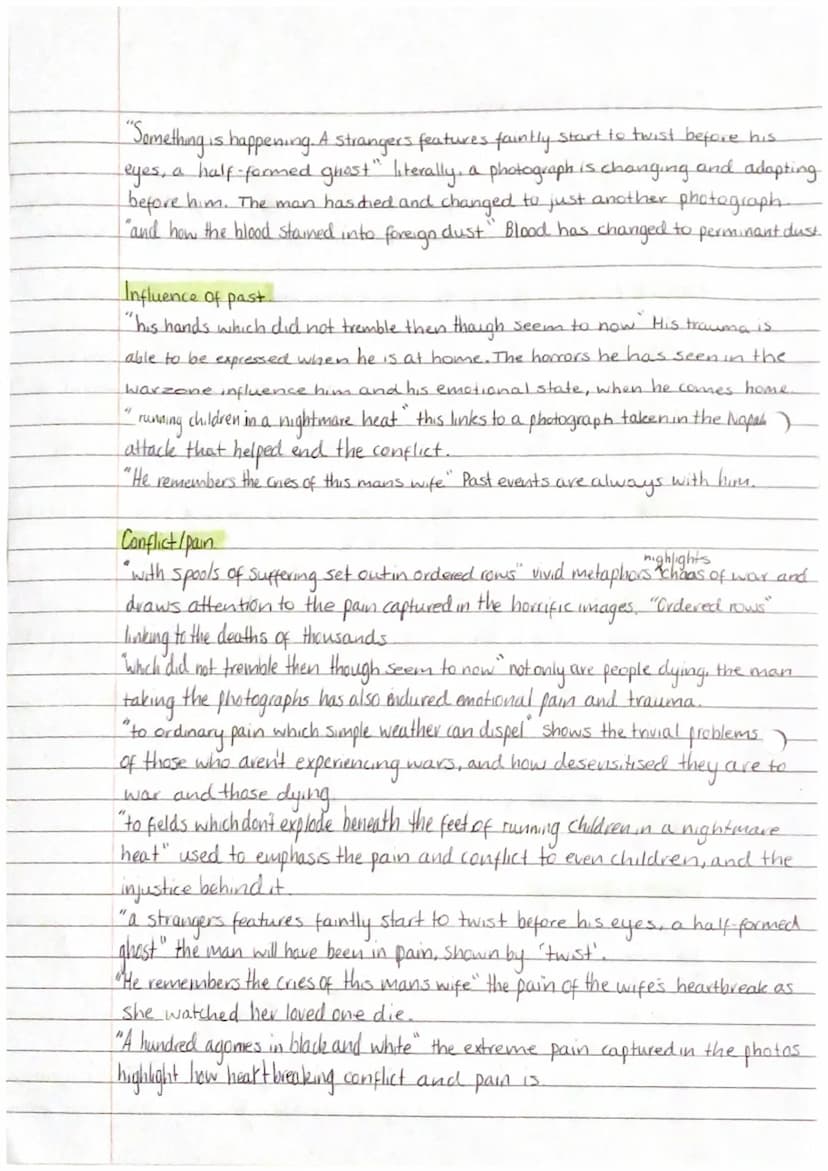 "Something is happening. A strangers features faintly start to twist before his
eyes, a half-formed ghost" literally, a photograph is changing and adapting
before him. The man has died and changed to just another photograph.
"and how the blood stained into foreign dust" Blood has changed to perminant dust.
Influence of past
"his hands which did not tremble then though seem to now" His trauma is
able to be expressed when he is at home. The horrors he has seen in the
warzone influence him and his emotional state, when he comes home.
"running children in a nightmare heat" this links to a photograph taken in the
attack that helped end the conflict.
"He remembers the cries of this mans wife" Past events are always with him.
Conflict/pain
highlights
"with spools of suffering set out in ordered rows" vivid metaphors chaos of war and
draws attention to the pain captured in the horrific images. "Ordered rows"
linking to the deaths of thousands
"which did not tremble then though seem to now" not only are people dying, the man
taking the photographs has also endured emotional pain and trauma.
"to ordinary pain which simple weather can dispel" shows the trivial problems
of those who aren't experiencing wars, and how desensitised they are to
war and those dying
"to fields which don't explode beneath the feet of running children in a nightmare
heat" used to emphasis the pain and conflict to even children, and the
injustice behind it.
"a strangers features faintly start to twist before his eyes, a half-formed
ghost" the man will have been in pain, shown by 'twist'.
"He remembers the cries of this mans wife" the pain of the wife's heartbreak as
she watched her loved one die.
"A hundred agonies in black and white" the extreme pain captured in the photos
highlight how heartbreaking conflict and pain is.